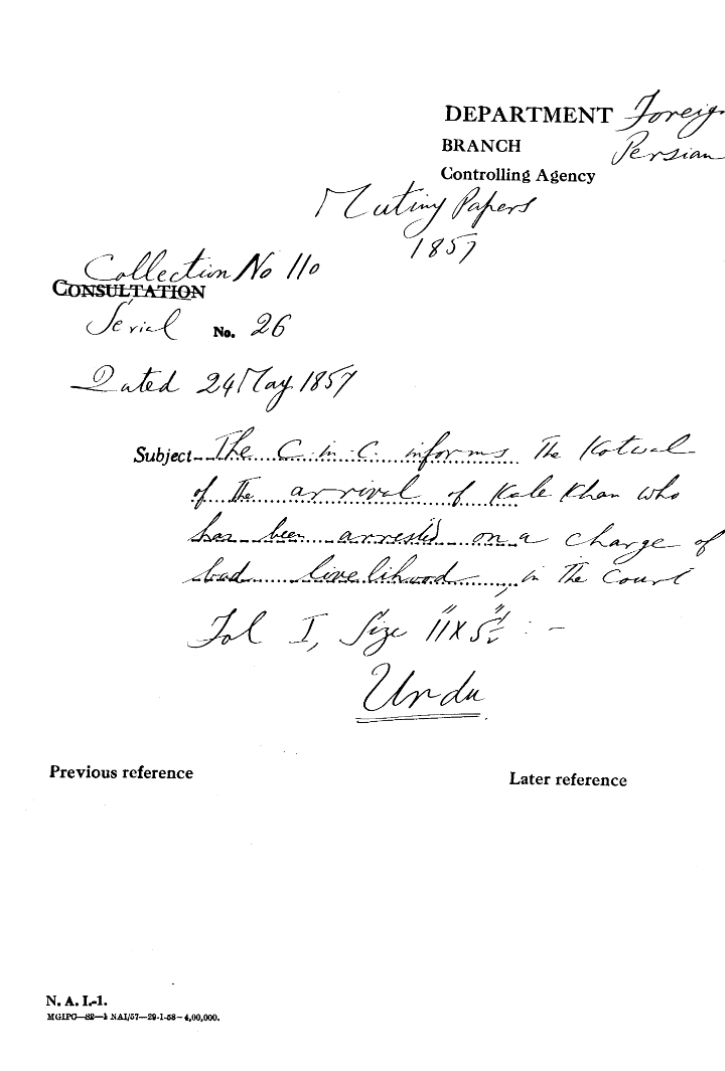 DEPARTMENT Foreign
BRANCH Persian
Controlling Agency
Mutiny Papers
1857
Collection No 110
CONSULTATION
Serial No. 26
Dated 24 May 1857
Subject The C. in. C. informs The Kotwal
of The arrival of Kale Khan who
has been arrested on a charge of
bad livelihood, in The Court
Fol I, Size 11" x 5½" : -
Urdu
Previous reference
Later reference
N. A. I.-1.
MGIPC—S2—1 NAI/57—29-1-58—4,00,000.